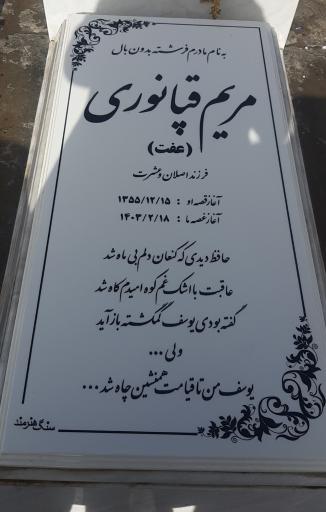 به نام مادرم فرشته بدون بال
مریم قپانوری
(عفت)
فرزند اصلان و عشرت
آغاز قصه او : ۱۳۵۵/۱۲/۱۵
آغاز غصه ما : ۱۴۰۳/۲/۱۸
حافظ دیدی که کنعان دلم بی ماه شد
عاقبت با اشک غم کوه امیدم کاه شد
گفته بودی یوسف گمگشته باز آید
ولی ...
یوسف من تا قیامت همنشین چاه شد ...
سنگ هنرمند